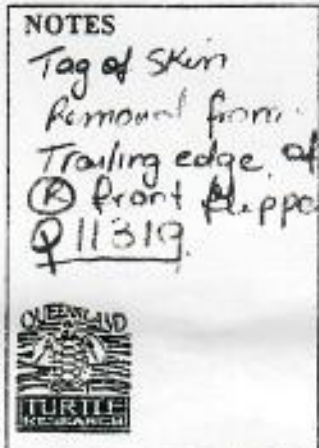 NOTES
Tag of Skin
Removed from
Trailing edge of
R front flippe
Q11319
QUEENSLAND
TURTLE
RESEARCH